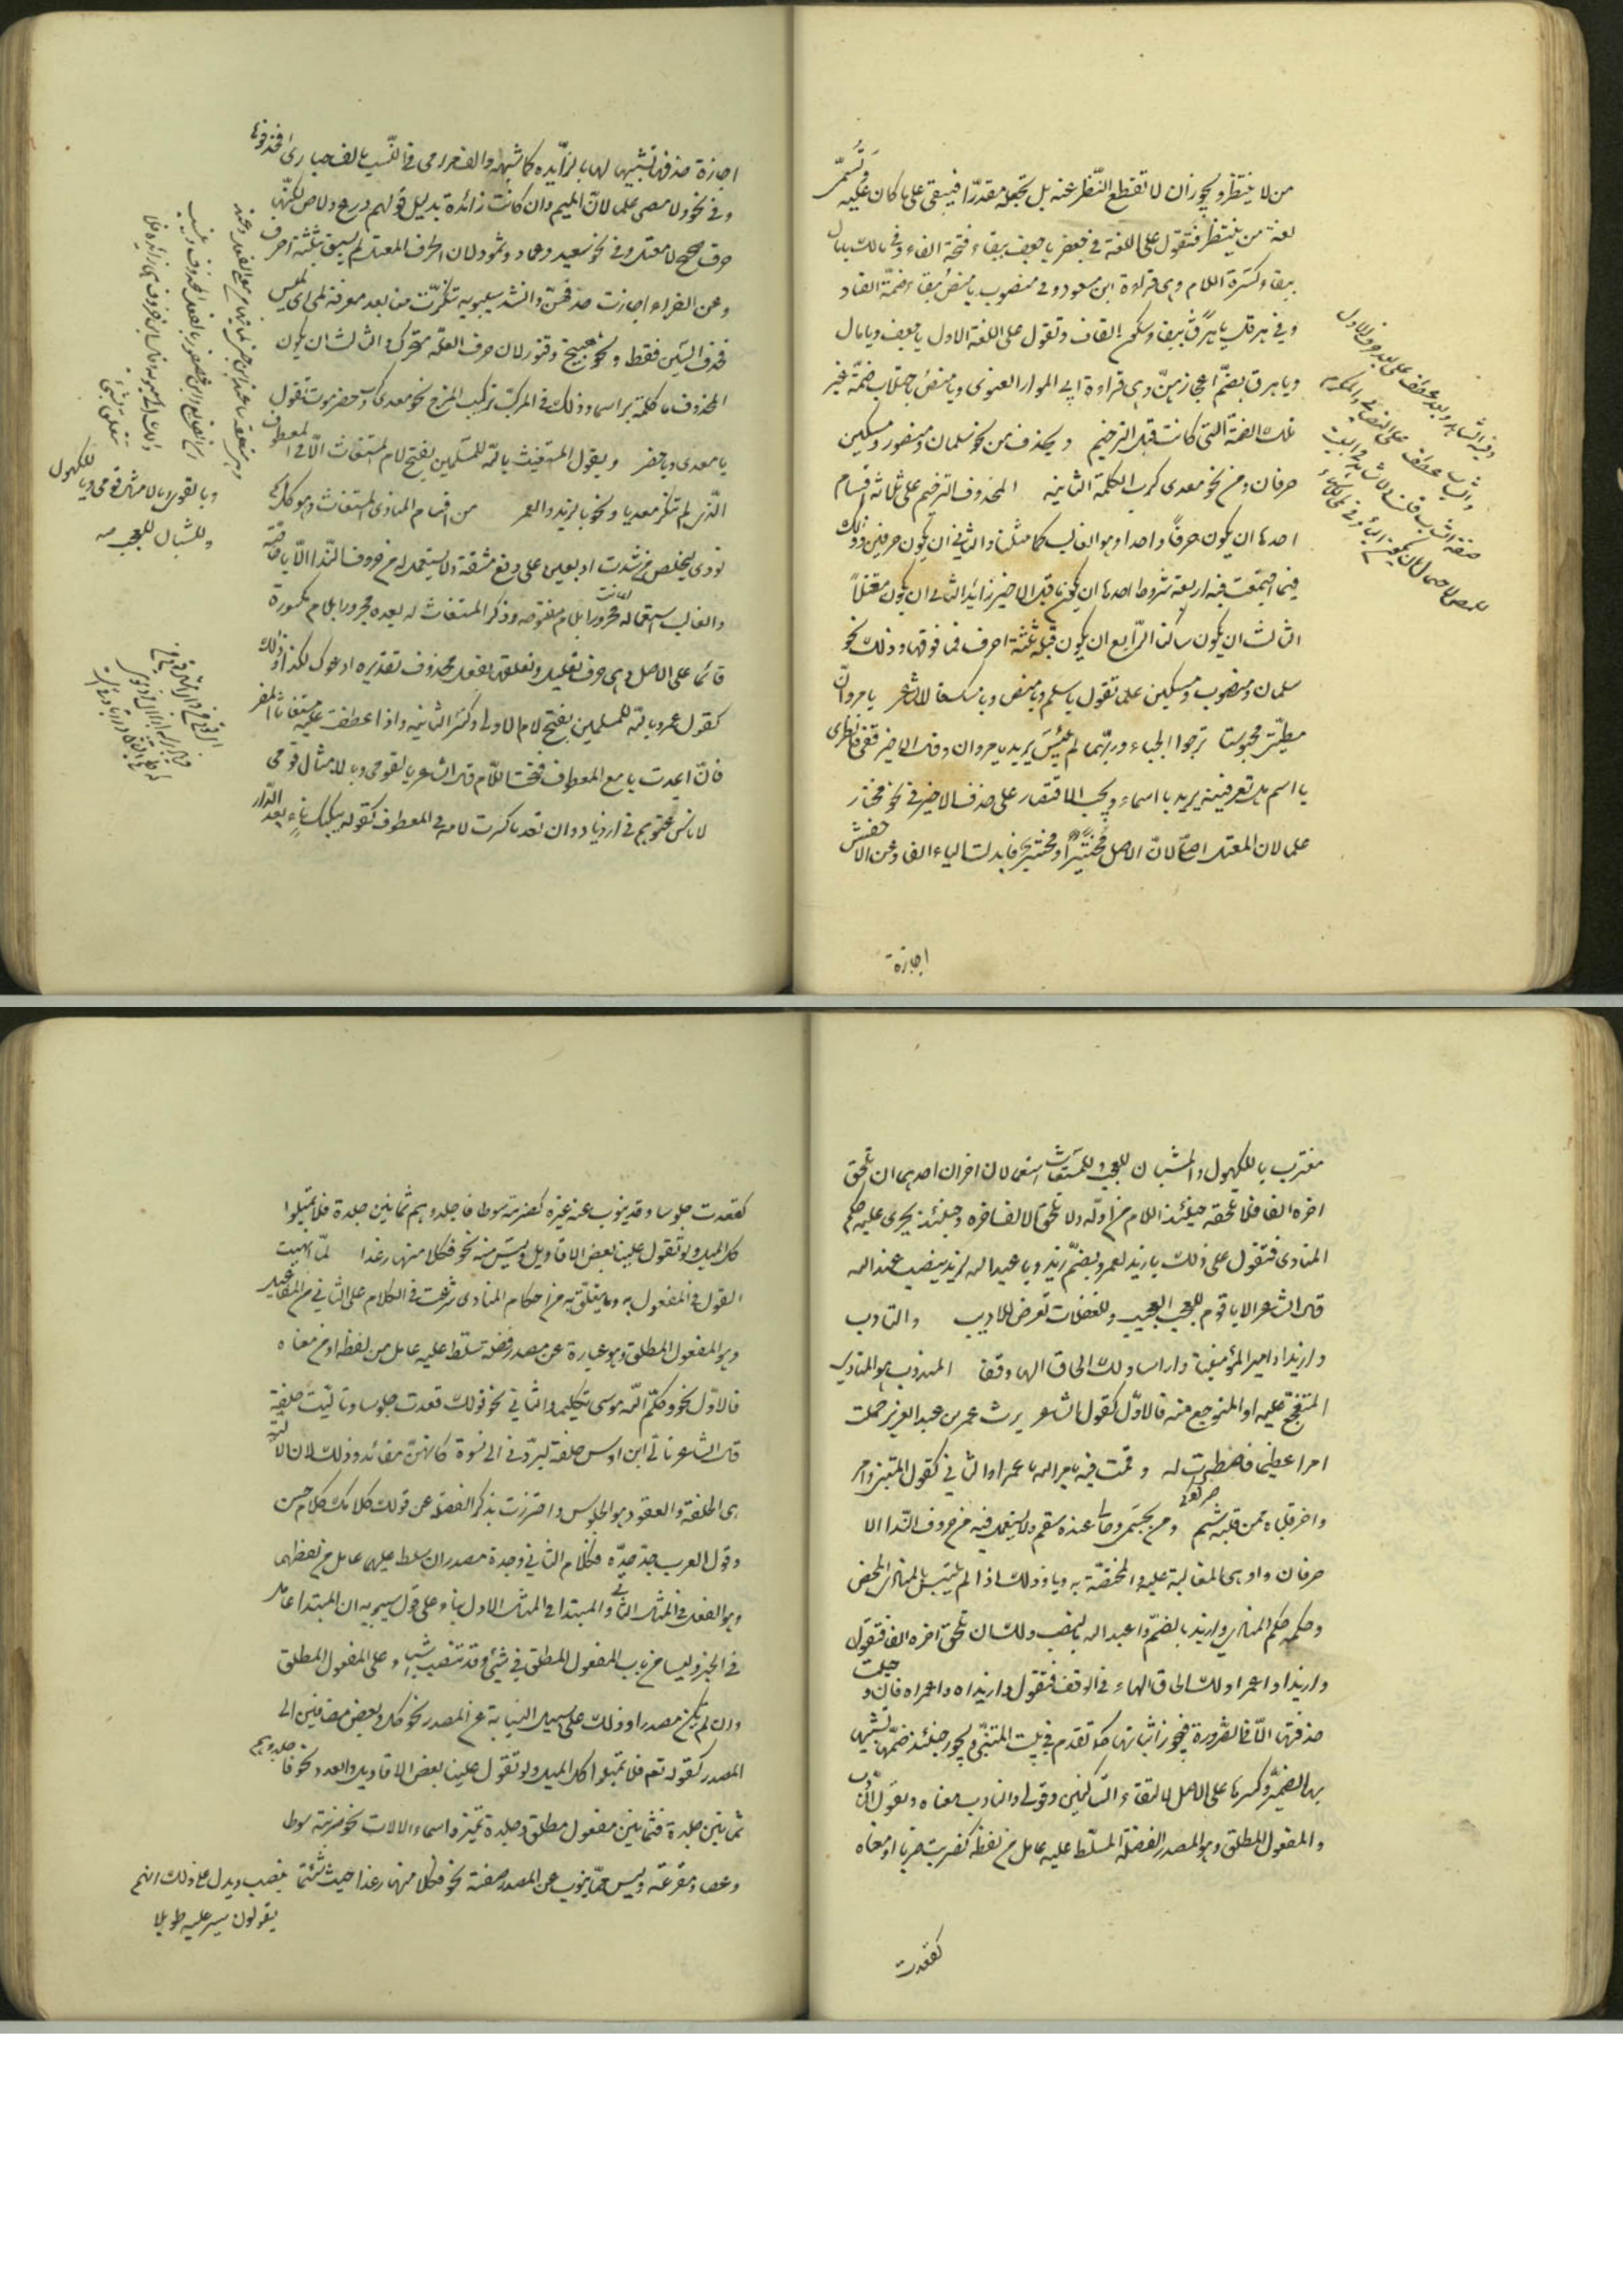 من لا ينتظر ويجوز ان لا تقطع النظر عنه بل تجعله مقدرا فيبقى على ما كان عليه وتسمى
لغة من ينتظر فتقول على اللغة في جعفر يا جعف ببقاء فتحة الفاء وفي مالك يا مال
ببقاء كسرة اللام وهي قراءة ابن مسعود وفي منصور يا منص ببقاء ضمة الصاد
وفي هرقل يا هرق ببقاء سكون القاف وتقول على اللغة الاول يا جعف ويا مال
ويا هرق بضم اعجازهن وهي قراءة ابي السوار الغنوي ويا منص باجتلاب ضمة غير
تلك الضمة التي كانت قبل الترخيم ويحذف من نحو سلمان ومنصور ومسكين
حرفان ومن نحو معدي كرب الكلمة الثانية المحذوف للترخيم على ثلاثة اقسام
احدها ان يكون حرفا واحدا وهو الغالب كما مثلنا والثاني ان يكون حرفين وذلك
فيما اجتمعت فيه اربعة شروط احدها ان يكون ما قبل الاخير زائدا الثاني ان يكون معتلا
الثالث ان يكون ساكنا الرابع ان يكون قبله ثلثة احرف فما فوقها وذلك نحو
سلمان ومنصور ومسكين علما تقول يا سلم ويا منص ويا مسك قال الشاعر يا مرو ان
مطيتي محبوسة ترجوا الحباء وربها لم ييئس يريد يا مروان وقال الاخر قفي فانظري
يا اسم هل تعرفينه يريد يا اسماء ويجب الاقتصار على حذف الاخير في نحو مختار
علما لان المعتل اصلي لان الاصل مختير او مختير فابدلت الياء الفا وعن الاخفش
اجازة
اجازة حذفها تشبيها لها بالزائدة كما شبهوا الف مرامى في النسب بالف حبارى فحذفوها
وفي نحو دلامص علما لان الميم وان كانت زائدة بدليل قولهم درع دلاص لكنها
حرف صحيح لا معتل وفي نحو سعيد وعماد وثمود لان الحرف المعتل لم يسبق بثلثة احرف
وعن الفراء اجازت حذفهن وانشد سيبويه تنكرت منا بعد معرفة لمي اي لميس
فحذف السين فقط ونحو هبيخ وقنور لان حرف العلة متحرك والثالث ان يكون
المحذوف كلمة براسها وذلك في المركب تركيب المزج نحو معدي كرب وحضرموت تقول
يا معدي ويا حضر ويقول المستغيث يا لله للمسلمين بفتح لام المستغاث الا في المعطوف
الذي لم تتكرر معه يا ونحو يا زيدا لعمرو من اقسام المنادى المستغاث وهو كل اسم
نودي ليخلص من شدة او يعين على دفع مشقة ولا يستعمل له من حروف النداء الا يا خاصة
والغالب استعماله مجرورا بلام مفتوحة وذكر المستغاث له بعده مجرورا بلام مكسورة
قائما على الاصل وهي حرف تعليل وتعلقها بفعل محذوف تقديره ادعوك لكذا وذلك
كقول عمر يا لله للمسلمين بفتح لام الاولى وكسر الثانية واذا عطفت عليه مستغاثا اخر
فان اعدت يا مع المعطوف فتحت اللام قال الشاعر يا لقومي ويا لامثال قومي
لاناس عتوهم في ازدياد وان لم تعد يا كسرت لامه في المعطوف كقوله يبكيك ناء بعيد الدار
ويا لقومي ويا لامثال قومي ويا للكهول
وللشبان للعجب
مغترب يا للكهول وللشبان للعجب وللمستغاث استعمالان اخران احدهما ان تلحق
اخره الفا فلا تلحقه حينئذ اللام من اوله ولا تلحق الالف اخره وحينئذ يجرى عليه حكم
المنادى فتقول على ذلك يا زيد لعمرو بضم زيد ويا عبد الله لزيد بنصب عبد الله
قال الشاعر الا يا قوم للعجب العجيب وللغفلات تعرض للاديب والنادب
وا زيدا وا امير المؤمنينا وا راسا ولك الحاق الهاء وقفا المندوب هو المنادى
المتفجع عليه او المتوجع منه فالاول كقول الشاعر يرث عمر بن عبد العزيز حملت
امرا عظيما فاصطبرت له وقمت فيه بامر الله يا عمرا والثاني كقول المتنبي وا حر
وا حر قلباه ممن قلبه شبم ومن بجسمي وحالي عنده سقم ولا يستعمل فيه من حروف النداء الا
حرفان وا وهي الغالبة عليه والمختصة به ويا وذلك اذا لم يلتبس بالمنادى المحض
وحكمه حكم المنادى وا زيد بالضم وا عبد الله بالنصب ولك ان تلحق اخره الف فتقول
وا زيدا وا عمرا ولك الحاق الهاء في الوقف فتقول وا زيداه وا عمراه فان وصلت
حذفتها الا في الضرورة فيجوز اثباتها كما تقدم في بيت المتنبي ويجوز حينئذ ضمها تشبيها
بهاء الضمير وكسرها على الاصل لالتقاء الساكنين وقولي والنادب معناه ويقول النادب
والمفعول المطلق وهو المصدر الفضلة المسلط عليه عامل من لفظه كضربت ضربا او معناه
كقعدت
كقعدت جلوسا وقد ينوب عنه غيره كضربته سوطا فاجلدوهم ثمانين جلدة فلا تميلوا
كل الميل ولو تقول علينا بعض الاقاويل وليس منه نحو فكلا منها رغدا لما انهيت
القول في المفعول به وما يتعلق به من احكام المنادى شرعت في الكلام على الثاني من المفاعيل
وهو المفعول المطلق وهو عبارة عن مصدر فضلة تسلط عليه عامل من لفظه او من معناه
فالاول نحو وكلم الله موسى تكليما والثاني نحو قولك قعدت جلوسا وتاليت حلفة
قال الشاعر تالى ابن اوس حلفة ليردني الى نسوة كانهن مفائد وذلك لان الالية
هي الحلفة والقعود هو الجلوس واحترزت بذكر الفضلة عن قولك كلامك كلام حسن
وقول العرب جد جده فكلام الثاني وجده مصدران سلط عليهما عامل من لفظهما
وهو الفعل في المثال الثاني والمبتدا في المثال الاول بناء على قول سيبويه ان المبتدا عامل
في الخبر وليسا من باب المفعول المطلق في شيء وقد تنصب اشياء على المفعول المطلق
وان لم تكن مصدرا وذلك على سبيل النيابة عن المصدر نحو كل وبعض مضافين الى
المصدر كقوله تعم فلا تميلوا كل الميل ولو تقول علينا بعض الاقاويل والعدد نحو فاجلدوهم
ثمانين جلدة فثمانين مفعول مطلق وجلدة تميز واسماء الالات نحو ضربته سوطا
وعصا ومقرعة وليس مما ينوب عن المصدر صفته نحو فكلا منها رغدا حيث شئتما بنصب ويدل على ذلك انهم
يقولون سير عليه طويلا